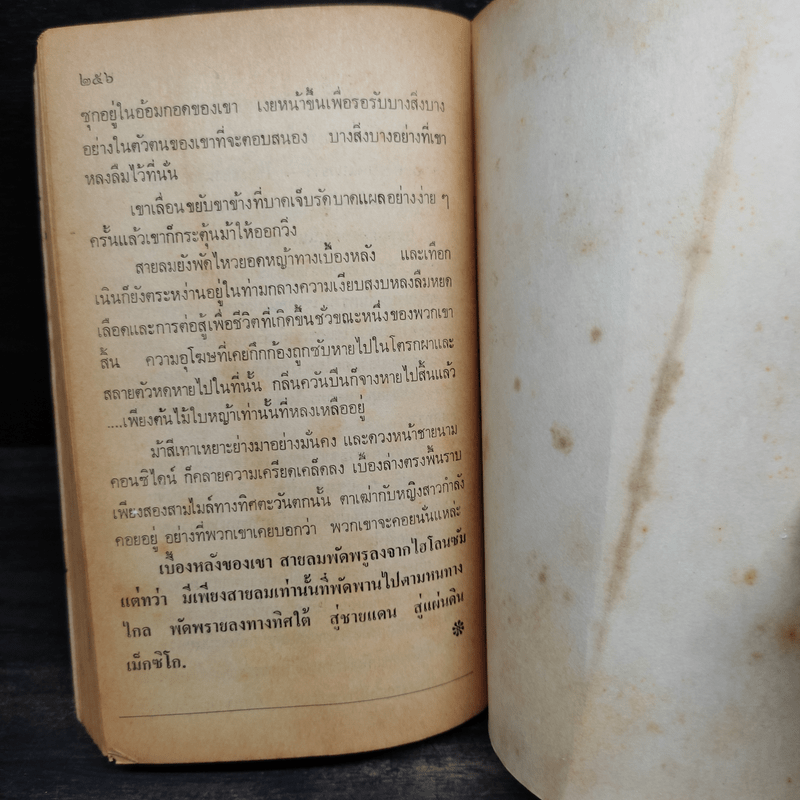 ๒๕๖
ซุกอยู่ในอ้อมกอดของเขา เงยหน้าขึ้นเพื่อรอรับบางสิ่งบาง
อย่างในตัวตนของเขาที่จะตอบสนอง บางสิ่งบางอย่างที่เขา
หลงลืมไว้ที่นั่น
เขาเลื่อนขยับขาข้างที่บาดเจ็บรัดบาดแผลอย่างง่าย ๆ
ครั้นแล้วเขาก็กระตุ้นม้าให้ออกวิ่ง
สายลมยังพัดไหวยอดหญ้าทางเบื้องหลัง และเทือก
เนินก็ยังตระหง่านอยู่ในท่ามกลางความเงียบสงบหลงลืมหยด
เลือดและการต่อสู้เพื่อชีวิตที่เกิดขึ้นชั่วขณะหนึ่งของพวกเขา
สิ้น ความอุโฆษที่เคยกึกก้องถูกซับหายไปในโตรกผาและ
สลายตัวหดหายไปในที่นั้น กลิ่นควันปืนก็จางหายไปสิ้นแล้ว
....เพียงต้นไม้ใบหญ้าเท่านั้นที่หลงเหลืออยู่
ม้าสีเทาเหยาะย่างมาอย่างมั่นคง และดวงหน้าชายนาม
คอนซิไดน์ ก็คลายความเครียดเคล็ดลง เบื้องล่างตรงพื้นราบ
เพียงสองสามไมล์ทางทิศตะวันตกนั้น ตาเฒ่ากับหญิงสาวกำลัง
คอยอยู่ อย่างที่พวกเขาเคยบอกว่า พวกเขาจะคอยนั่นแหล่ะ
เบื้องหลังของเขา สายลมพัดพรูลงจากไฮโลนซัม
แต่ทว่า มีเพียงสายลมเท่านั้นที่พัดพานไปตามหนทาง
ไกล พัดพรายลงทางทิศใต้ สู่ชายแดน สู่แผ่นดิน
เม็กซิโก.